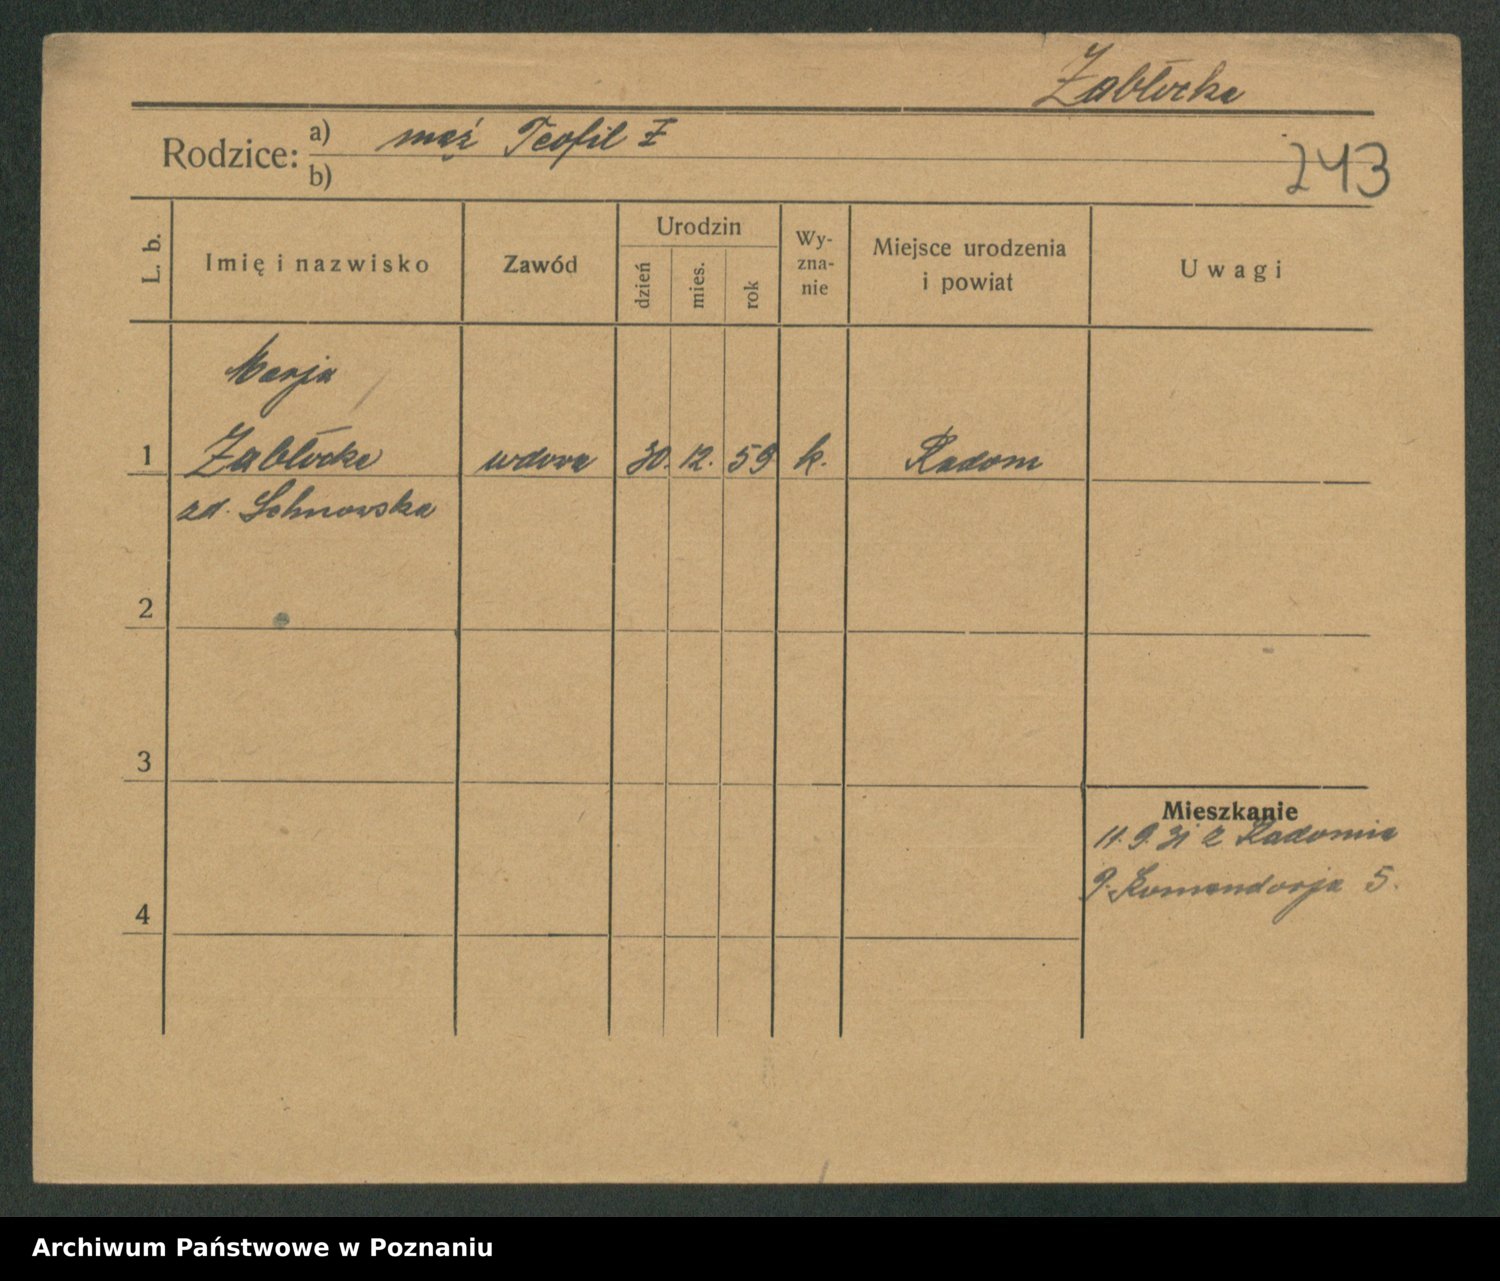 Zabłocka
Rodzice: a) mąż Teofil Z
b)
243
L. b.
Imię i nazwisko
Zawód
Urodzin
dzień
mies.
rok
Wy-
zna-
nie
Miejsce urodzenia
i powiat
Uwagi
Marja
1 Zabłocka wdowa 30. 12. 59 k. Radom
zd. Lohnowska
2
3
4
Mieszkanie
11. 9. 31 z Radomia
Komandorja 5.
Archiwum Państwowe w Poznaniu